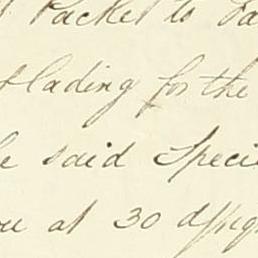 Packet to
lading for the
said Speci
at 30 d